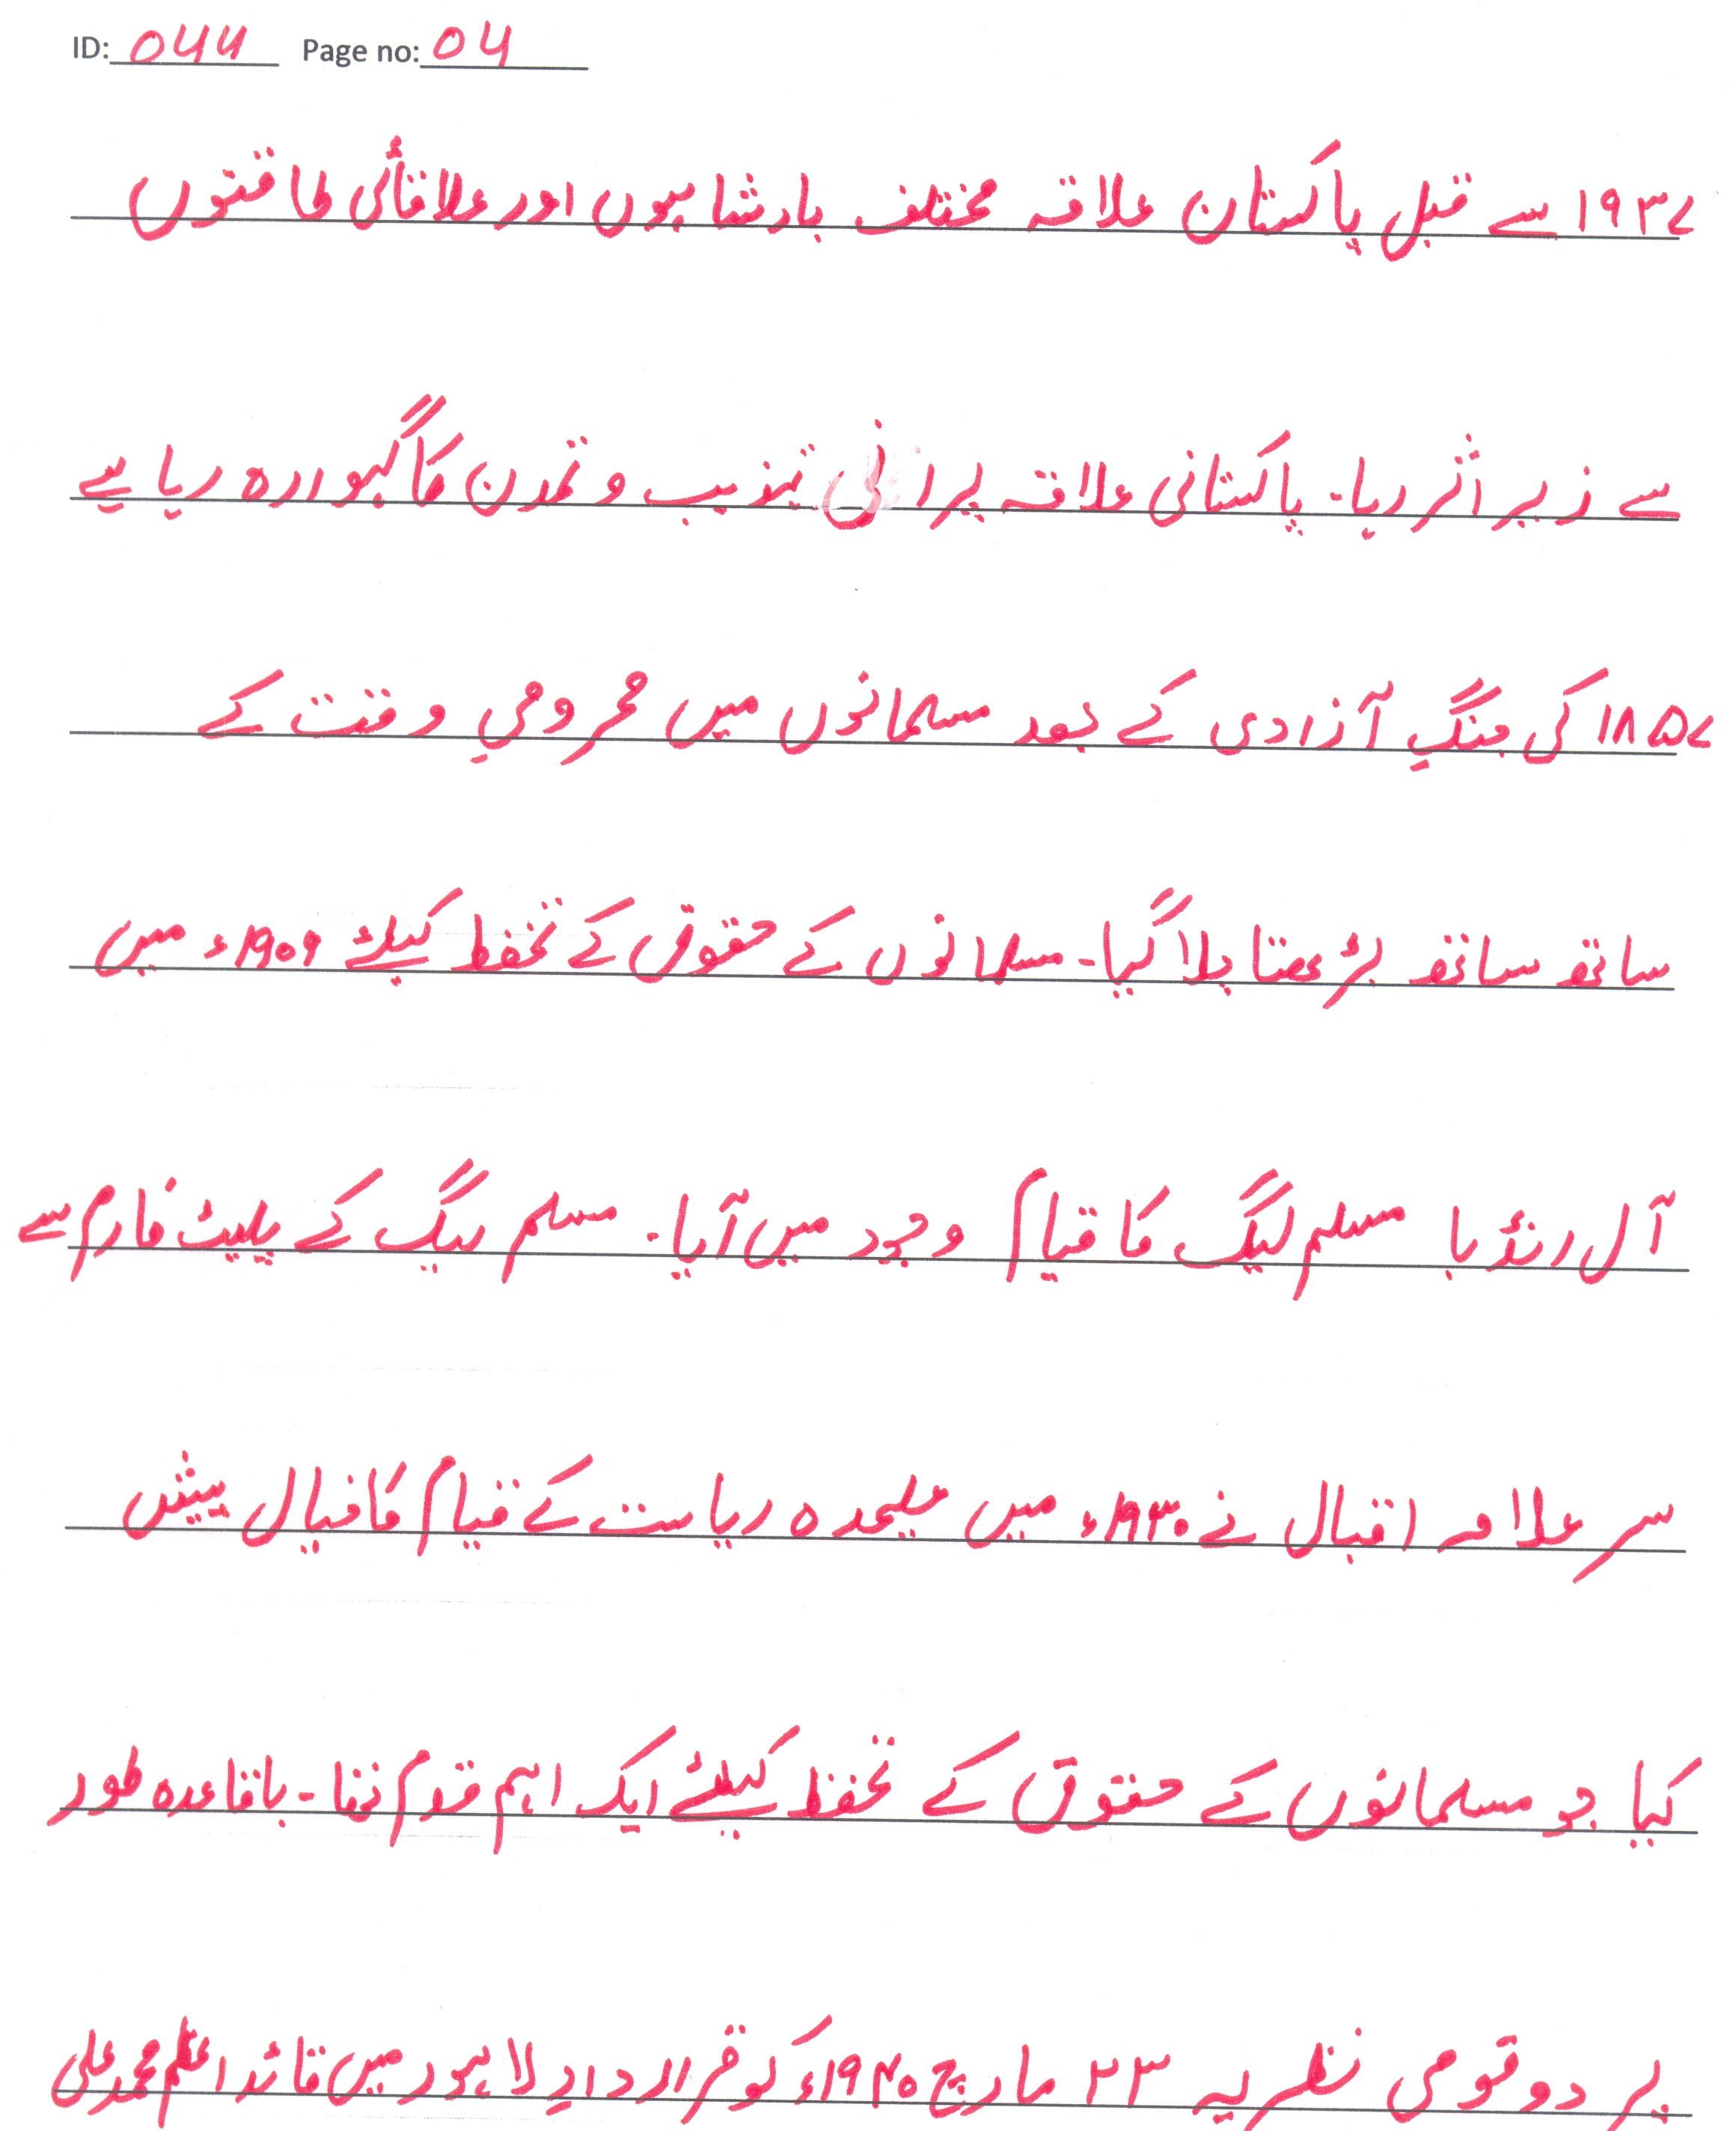 ID: 044 Page no: 04
۱۹۳۷ سے قبل پاکستان علاقہ مختلف بادشاہوں اور علاقائی طاقتوں
سے زیر اثر رہا۔ پاکستانی علاقہ پرانی تہذیب و تمدن کا گہوارہ رہا ہے
۱۸۵۷ کی جنگِ آزادی کے بعد مسلمانوں میں محرومی وقت کے
ساتھ ساتھ بڑھتا چلا گیا۔ مسلمانوں کے حقوق کے تحفظ کیلئے ۱۹۰۶ء میں
آل انڈیا مسلم لیگ کا قیام وجود میں آیا۔ مسلم لیگ کے پلیٹ فارم سے
سر علامہ اقبال نے ۱۹۳۰ء میں علیحدہ ریاست کے قیام کا خیال پیش
کیا جو مسلمانوں کے حقوق کے تحفظ کیلئے ایک اہم قدم تھا۔ باقاعدہ طور
پر دو قومی نظریہ ۲۳ مارچ ۱۹۴۰ء کو قراردادِ لاہور میں قائد اعظم محمد علی